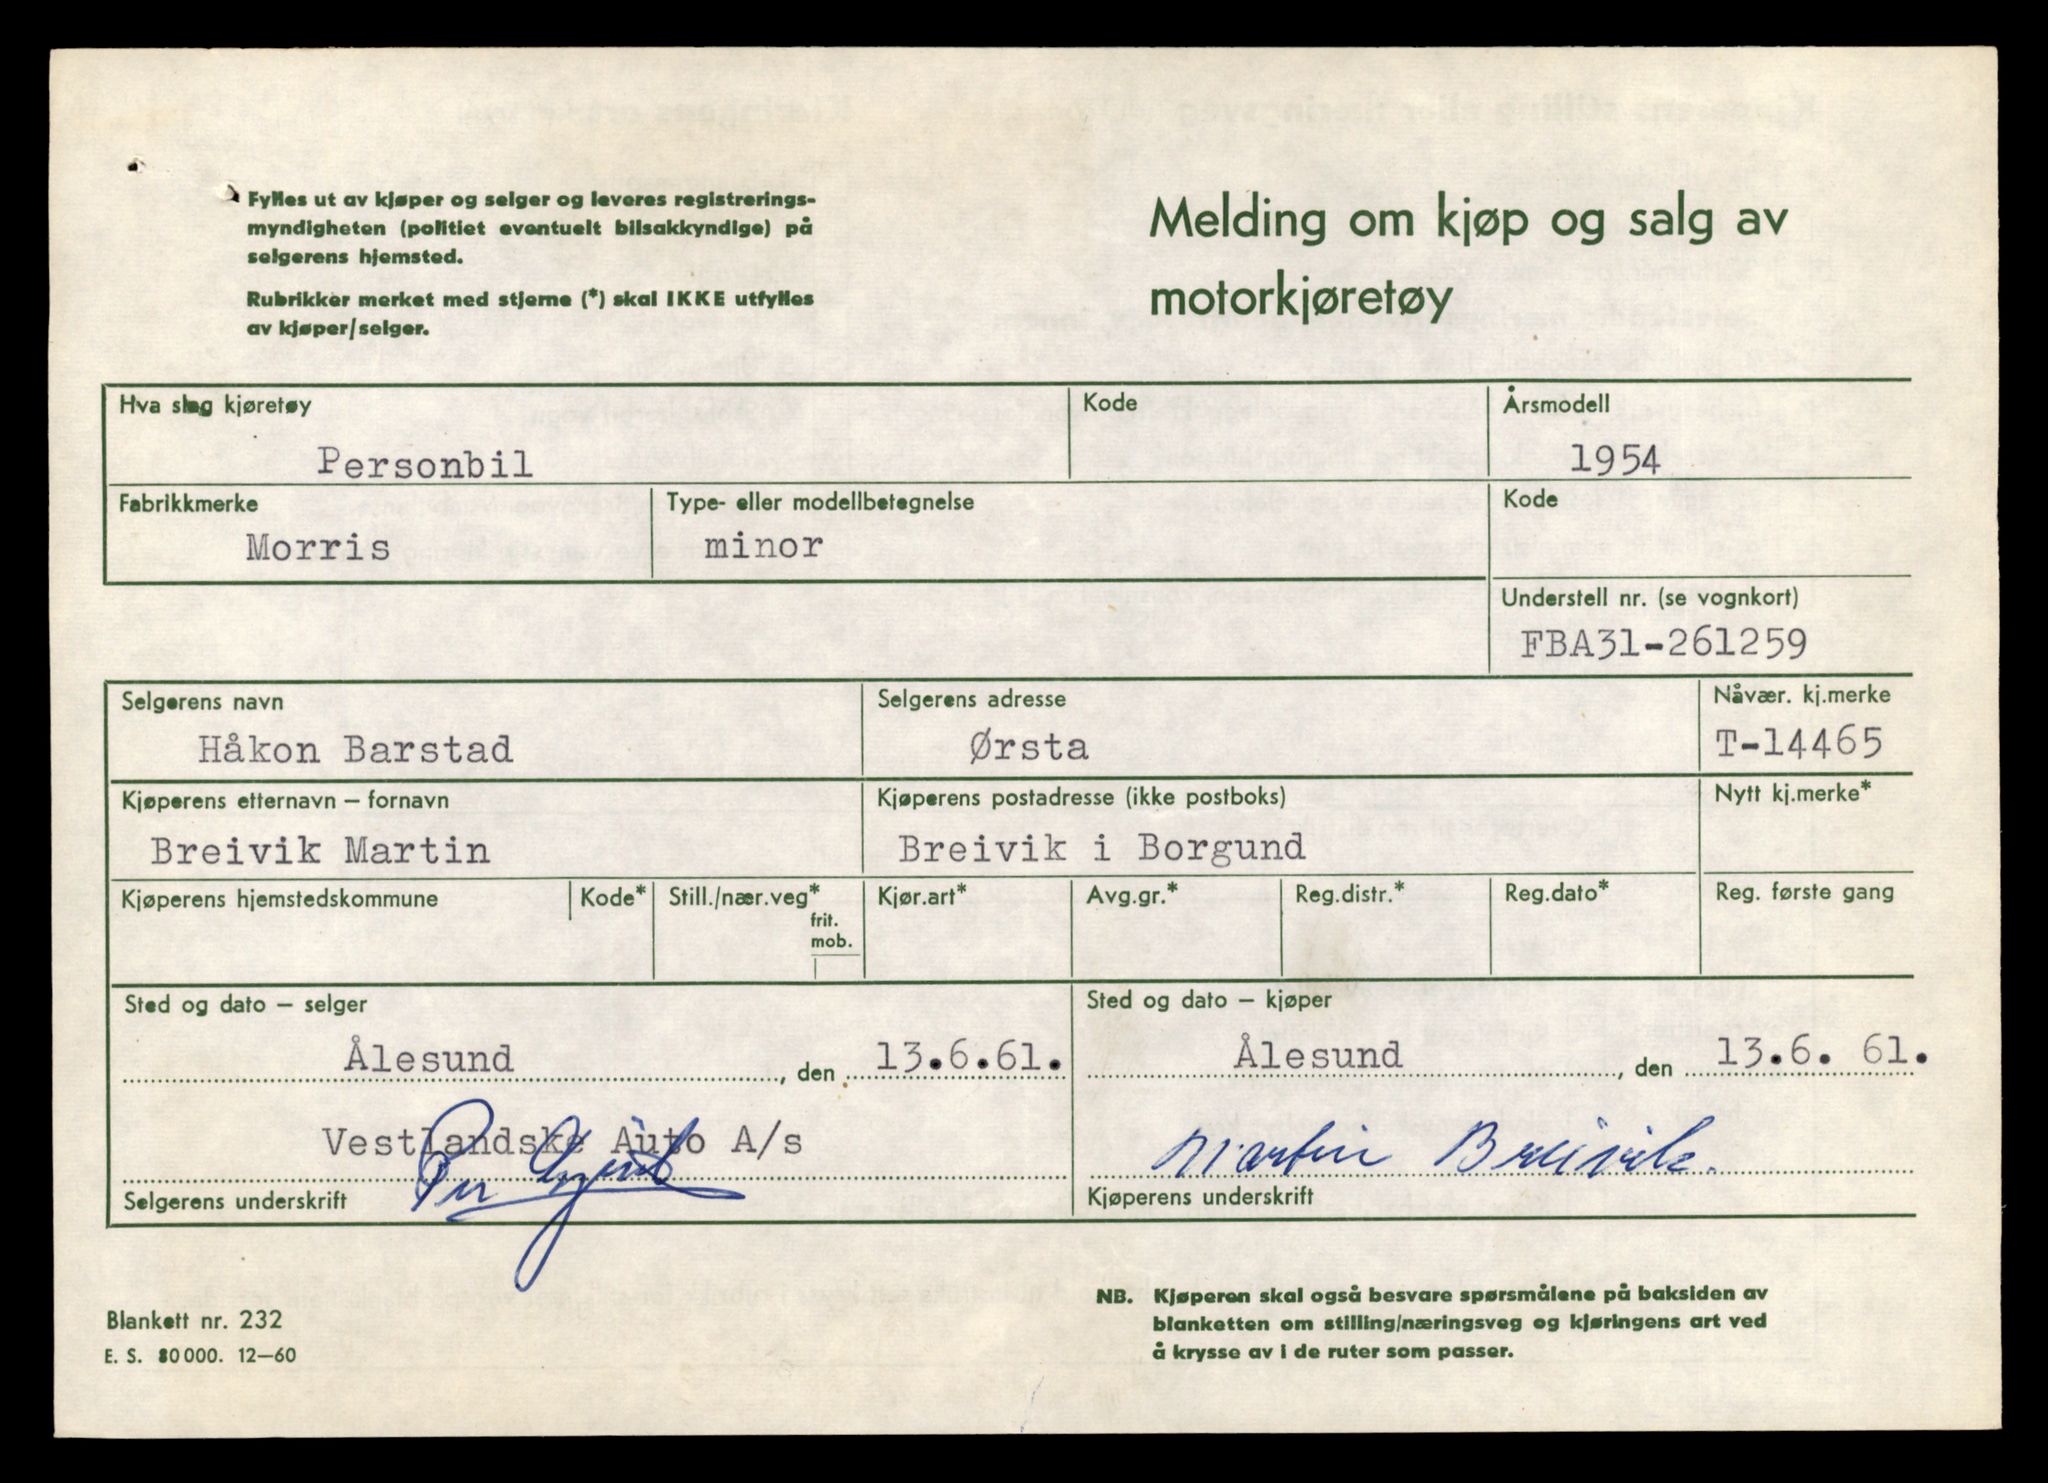 Fylles ut av kjøper og selger og leveres registrerings-
myndigheten (politiet eventuelt bilsakkyndige) på
selgerens hjemsted.
Rubrikker merket med stjerne (*) skal IKKE utfylles
av kjøper/selger.
Melding om kjøp og salg av
motorkjøretøy
Hva slag kjøretøy
Kode
Årsmodell
Personbil
1954
Fabrikkmerke
Type- eller modellbetegnelse
Kode
Morris
minor
Understell nr. (se vognkort)
FBA31-261259
Selgerens navn
Selgerens adresse
Nåvær. kj.merke
Håkon Barstad
Ørsta
T-14465
Kjøperens etternavn – fornavn
Kjøperens postadresse (ikke postboks)
Nytt kj.merke*
Breivik Martin
Breivik i Borgund
Kjøperens hjemstedskommune
Kode*
Still./nær.veg*
frit.
mob.
Kjør.art*
Avg.gr.*
Reg.distr.*
Reg.dato*
Reg. første gang
Sted og dato – selger
Sted og dato – kjøper
Ålesund, den 13.6.61.
Ålesund, den 13.6. 61.
Vestlandske Auto A/s
Martin Breivik.
Selgerens underskrift
Kjøperens underskrift
Blankett nr. 232
E. S. 80 000. 12–60
NB. Kjøperen skal også besvare spørsmålene på baksiden av
blanketten om stilling/næringsveg og kjøringens art ved
å krysse av i de ruter som passer.